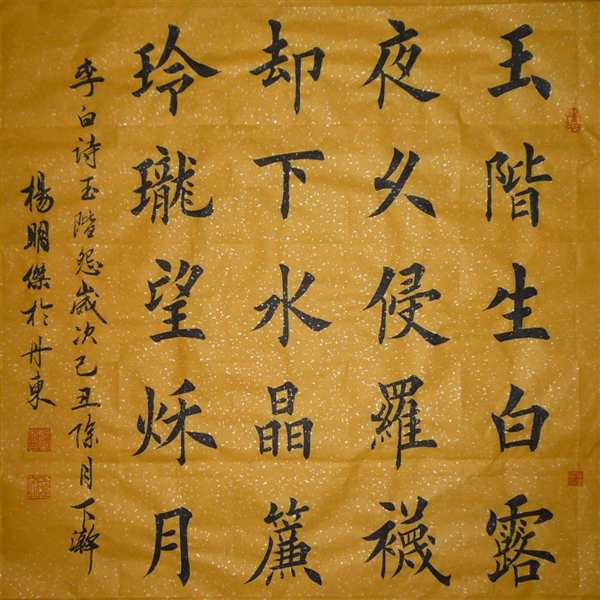 玉階生白露
夜久侵羅襪
却下水晶簾
玲瓏望秌月
李白诗玉階怨歲次己丑除月下澣
楊明傑於丹東